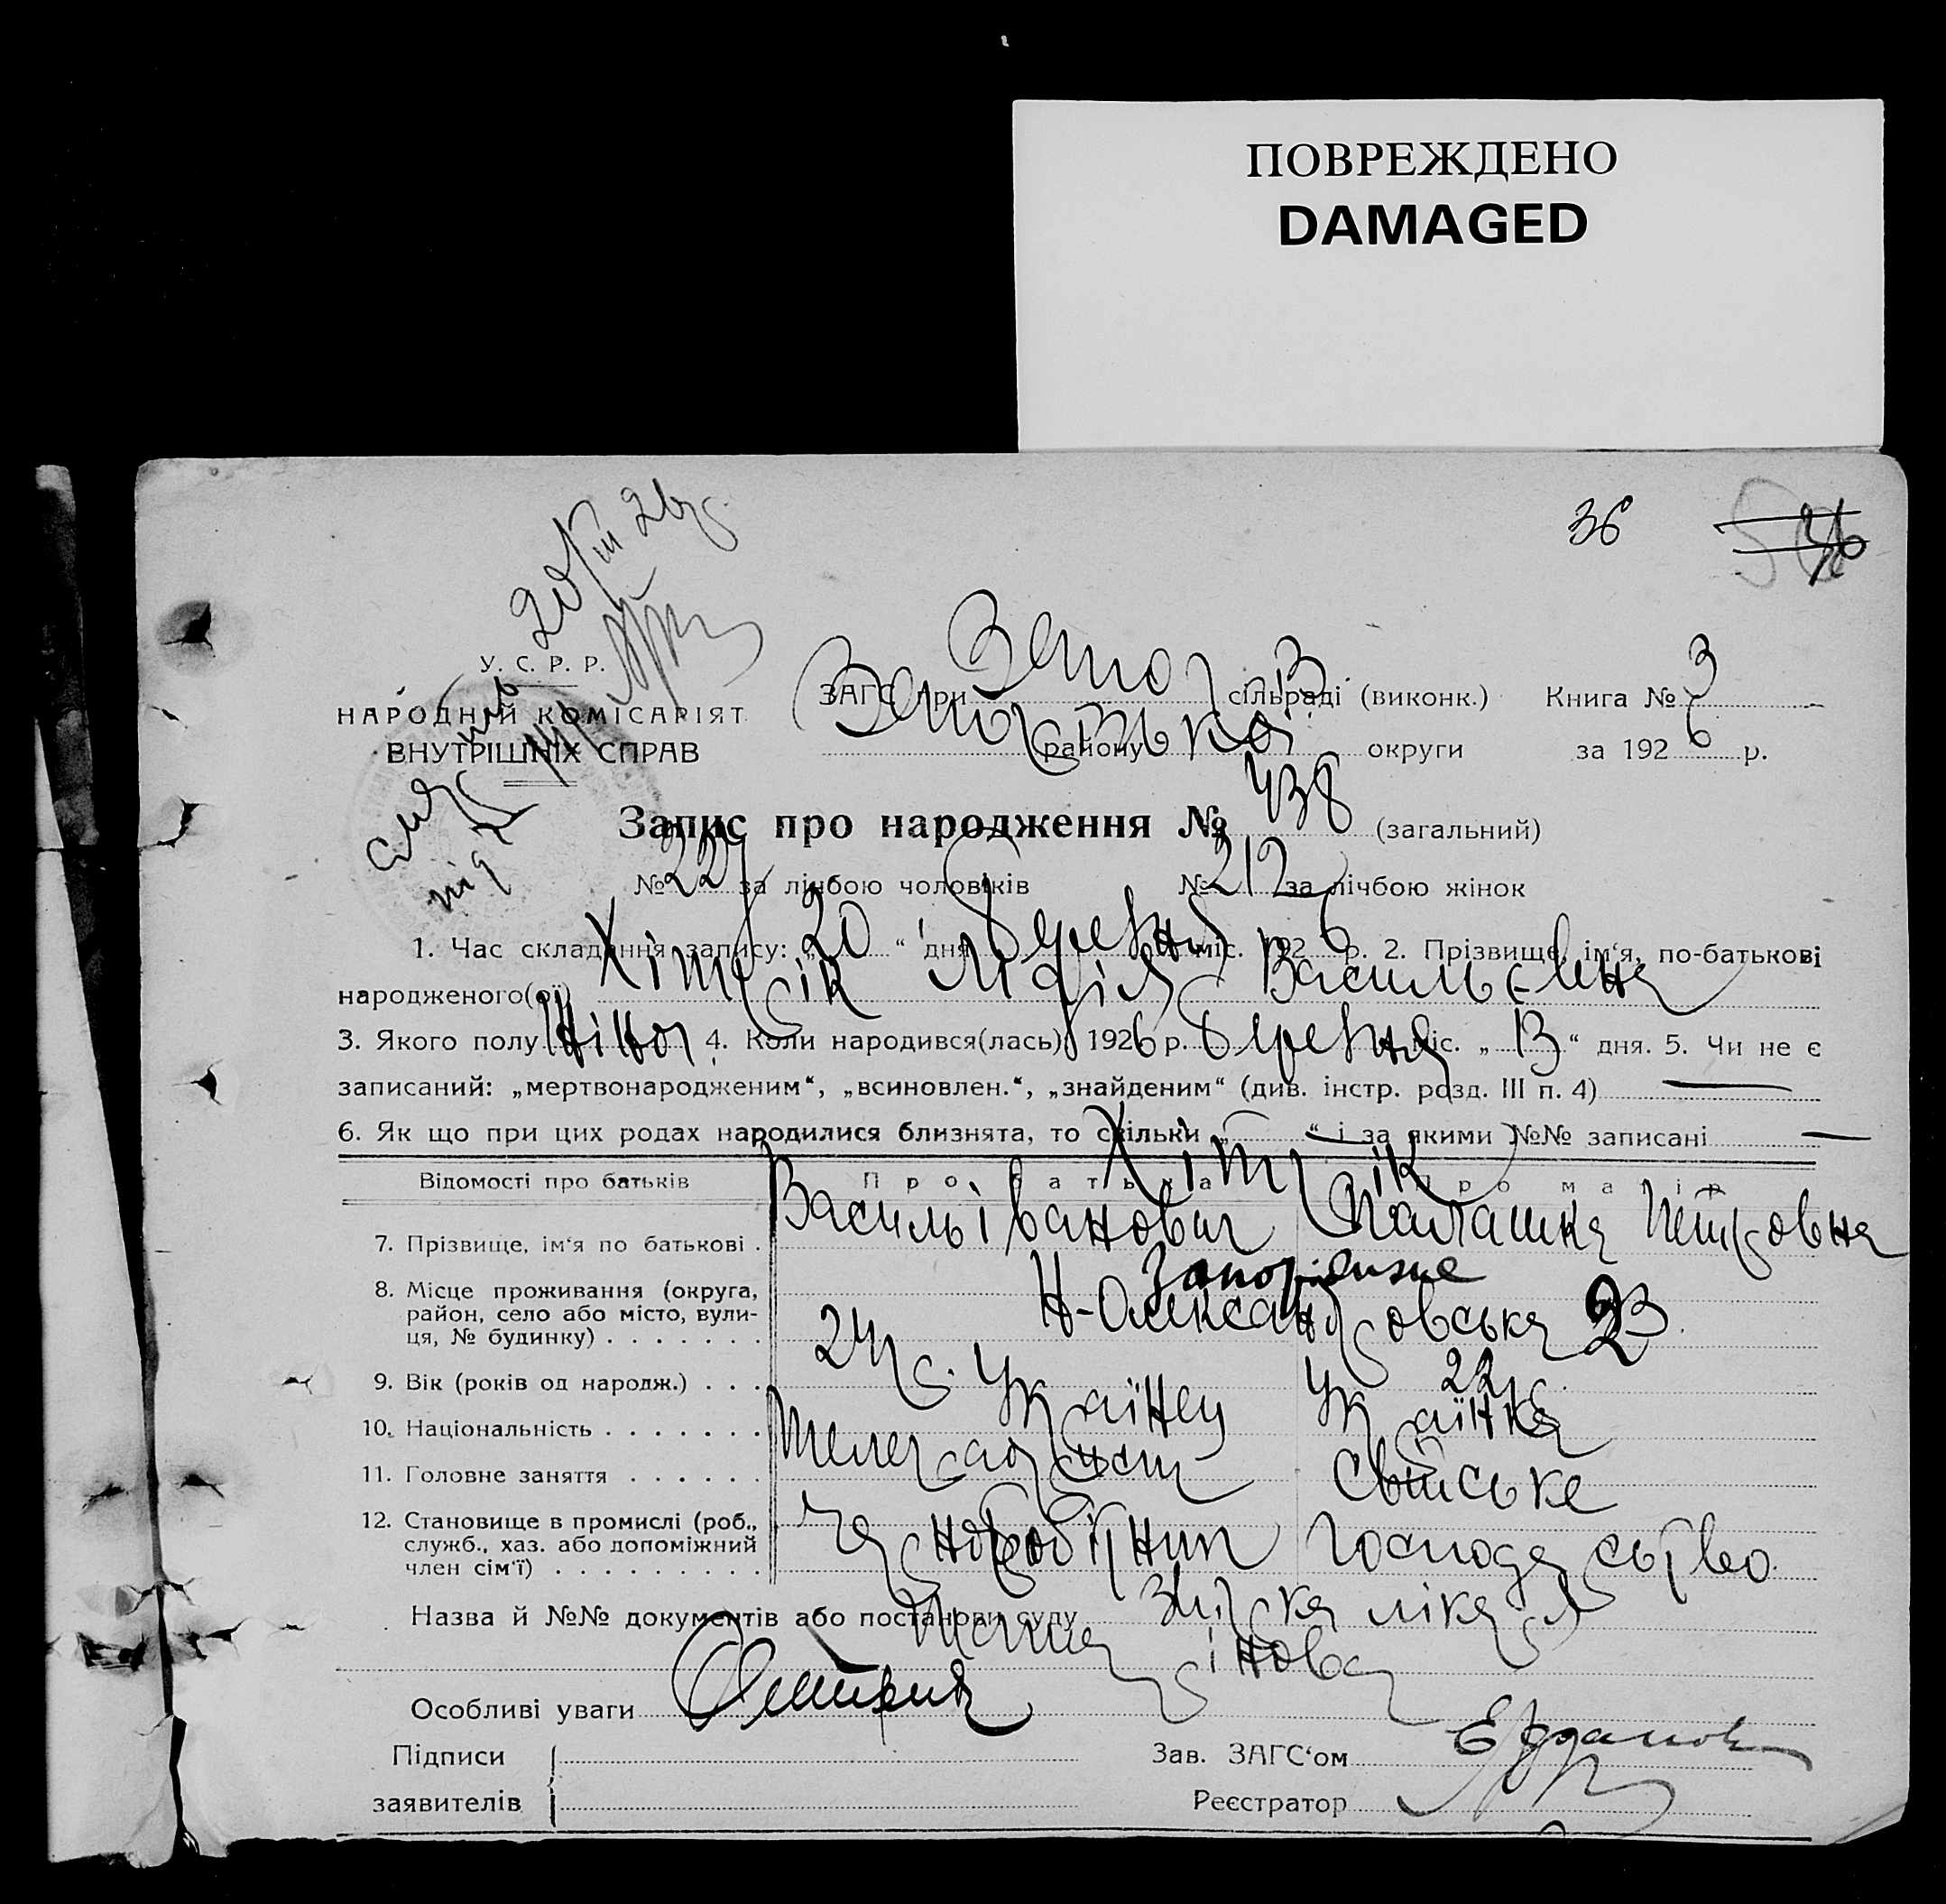 ПОВРЕЖДЕНО
DAMAGED
36
20/III 26 р.
У. С. Р. Р.
НАРОДНІЙ КОМІСАРІЯТ
ВНУТРІШНІХ СПРАВ
ЗАГС при сільраді (виконк.) Книга № 3
району округи за 1926 р.
Запис про народження № 438 (загальний)
№ за лічбою чоловіків № 212 за лічбою жінок
1. Час складання запису: „20“ дня березня міс. 1926 р. 2. Прізвище, ім‘я, по-батькові
народженого(ої) Хітрік Лідія Васильєвна
3. Якого полу Жіноч. 4. Коли народився(лась) 1926 р. березня міс. „13“ дня. 5. Чи не є
записаний: „мертвонародженим“, „всиновлен.“, „знайденим“ (див. інстр. розд. III п. 4) —
6. Як що при цих родах народилися близнята, то скільки „—“ і за якими №№ записані —
Відомості про батьків Про батька Про матір
Хітрік
7. Прізвище, ім‘я по батькові . Василь Іванович Палашка Петровна
8. Місце проживання (округа, Запоріжжє
район, село або місто, вули- Н-Олександровська 23
ця, № будинку) . . . . . . .
9. Вік (років од народж.) . . . 24 р. 22 р.
10. Національність . . . . . . . Українец Українка
11. Головне заняття . . . . . . Телеграфист Свійське
12. Становище в промислі (роб.,
служб., хаз. або допоміжний Господарство
член сім‘ї) . . . . . . . . .
Назва й №№ документів або постанови суду лікаря
Особливі уваги
Підписи Зав. ЗАГС‘ом
заявителів Реєстратор